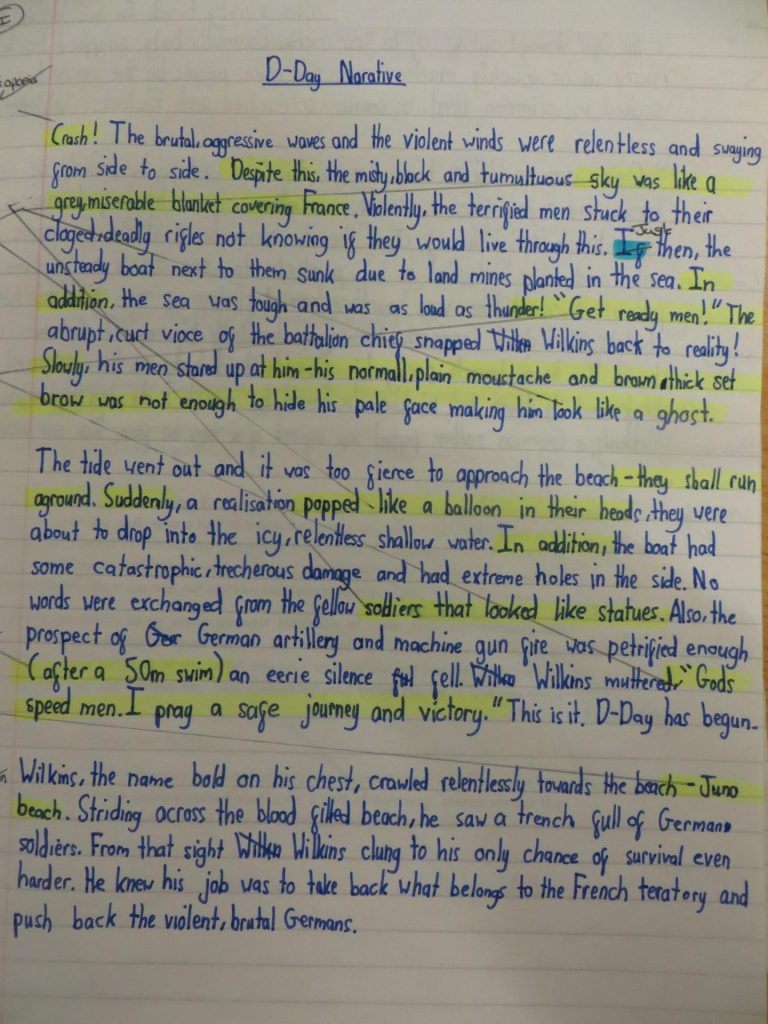 D-Day Narative
Crash! The brutal, aggressive waves and the violent winds were relentless and swaying
from side to side. Despite this, the misty, black and tumultuous sky was like a
grey, miserable blanket covering France. Violently, the terrified men stuck to their
cloged, deadly rifles not knowing if they would live through this. Just then, the
unsteady boat next to them sunk due to land mines planted in the sea. In
addition, the sea was tough and was as loud as thunder! "Get ready men!" The
abrupt, curt vioce of the battalion chief snapped Wilkins back to reality!
Slowly, his men stared up at him - his normall, plain moustache and brown, thick set
brow was not enough to hide his pale face making him look like a ghost.
The tide went out and it was too fierce to approach the beach - they shall run
aground. Suddenly, a realisation popped - like a balloon in their heads, they were
about to drop into the icy, relentless shallow water. In addition, the boat had
some catastrophic, trecherous damage and had extreme holes in the side. No
words were exchanged from the fellow soldiers that looked like statues. Also, the
prospect of German artillery and machine gun fire was petrified enough
(after a 50m swim) an eerie silence fell. Wilkins muttered, "Gods
speed men. I pray a safe journey and victory." This is it. D-Day has begun.
Wilkins, the name bold on his chest, crawled relentlessly towards the beach - Juno
beach. Striding across the blood filled beach, he saw a trench full of German
soldiers. From that sight Wilkins clung to his only chance of survival even
harder. He knew his job was to take back what belongs to the French teratory and
push back the violent, brutal Germans.